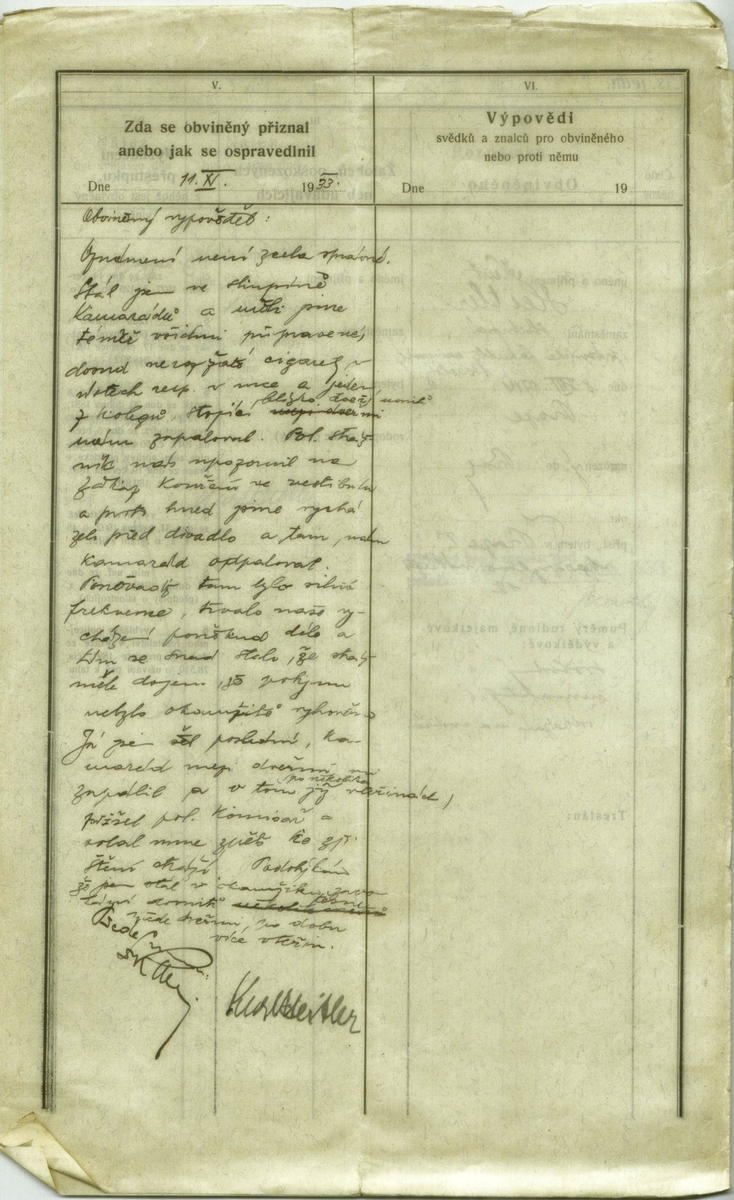 V.
Zda se obviněný přiznal
anebo jak se ospravedlnil
Dne 11. XI. 1933.
VI.
Výpovědi
svědků a znalců pro obviněného
nebo proti němu
Dne 19
Obviněný vypověděl:
Oznámení není zcela správné.
Stál jsem ve skupině
kamarádů a měli jsme
téměř všichni připravené,
dosud nezapálené cigarety v
ústech resp. v ruce a jeden
z kolegů, stojící blízko dveří
nám zapaloval. Pol. stráž
ník nás upozornil na
zákaz kouření ve vestibulu
a proto hned jsme vychá
zeli před divadlo a tam nám
kamarád odpaloval.
Poněvadž tam bylo silné
frekvence, trvalo naše vy-
cházení poněkud déle a
tím se snad stalo, že stráž
měla dojem, že pokynu
nebylo okamžitě vyhověno
Já jsem šel poslední, ka-
marád mezi dveřmi
zapálil a v tom již po několika vteřinách
přišel pol. komisař a
volal mne zpět ke zji
štění. Podotýkám
že jsem stál v okamžiku
více vteřin.